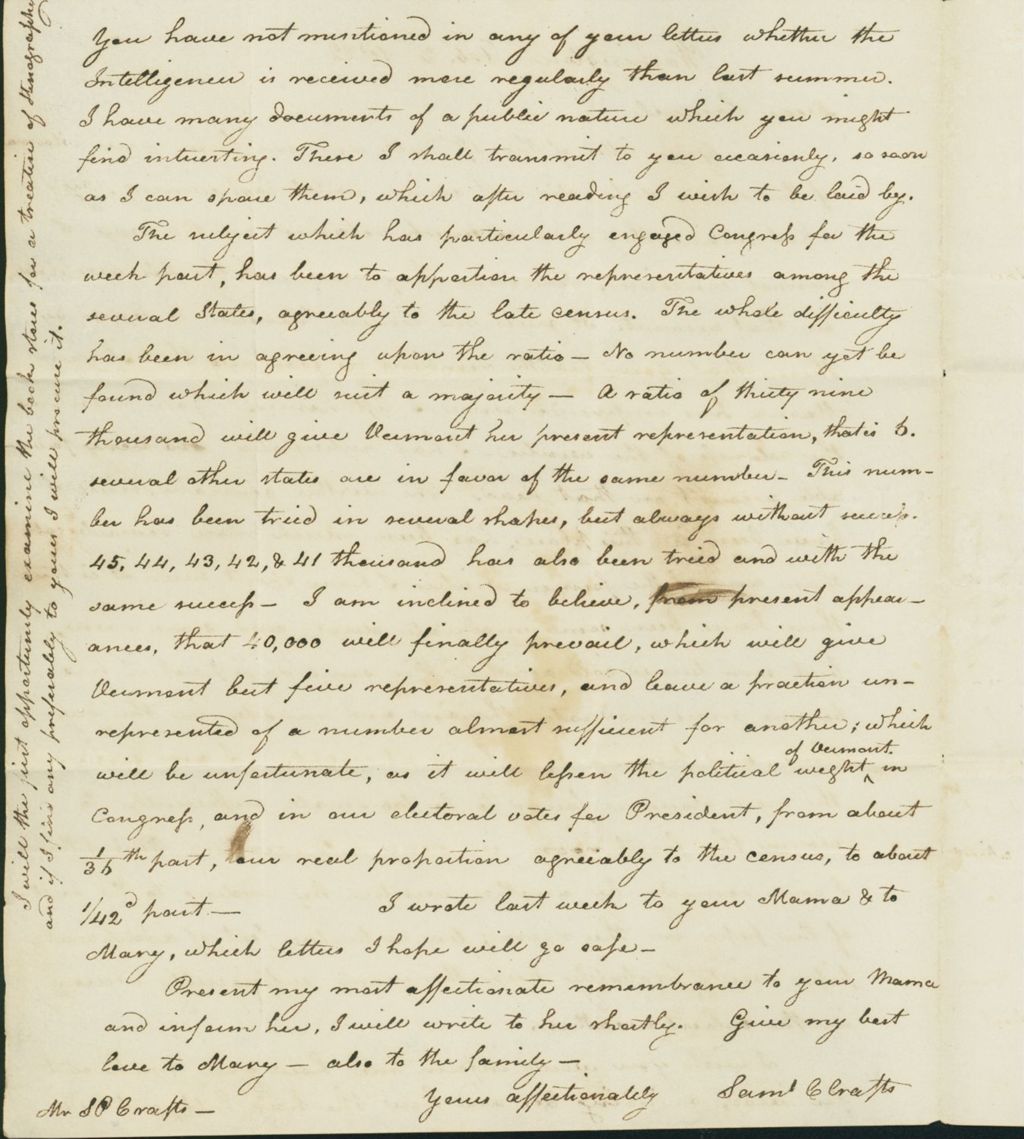 You have not mentioned in any of your letters whether the
Intelligencer is received more regularly than last summer.
I have many documents of a public nature which you might
find interesting. These I shall transmit to you occasionly, so soon
as I can spare them, which after reading I wish to be laid by.
The subject which has particularly engaged Congress for the
week past, has been to apportion the representatives among the
several States, agreeably to the late census. The whole difficulty
has been in agreeing upon the ratio — No number can yet be
found which will suit a majority — A ratio of thirty nine
thousand will give Vermont her present representation, that is 6.
several other states are in favor of the same number — This num-
ber has been tried in several shapes, but always without success.
45, 44, 43, 42, & 41 thousand has also been tried and with the
same success — I am inclined to believe, from present appear-
ances, that 40,000 will finally prevail, which will give
Vermont but five representatives, and leave a fraction un-
represented of a number almost sufficient for another; which
will be unfortunate, as it will lessen the political weight ^ of Vermont in
Congress, and in our electoral votes for President, from about
1/36th part, our real proportion agreeably to the census, to about
1/42d part — I wrote last week to your Mama & to
Mary, which letters I hope will go safe —
Present my most affectionate remembrance to your Mama
and inform her, I will write to her shortly. Give my best
love to Mary — also to the family —
Yours affectionately Saml C Crafts
Mr S P Crafts —
I will the first opportunity examine the book stores for a treatise of Stenography
and if I find any preferably to yours I will procure it.